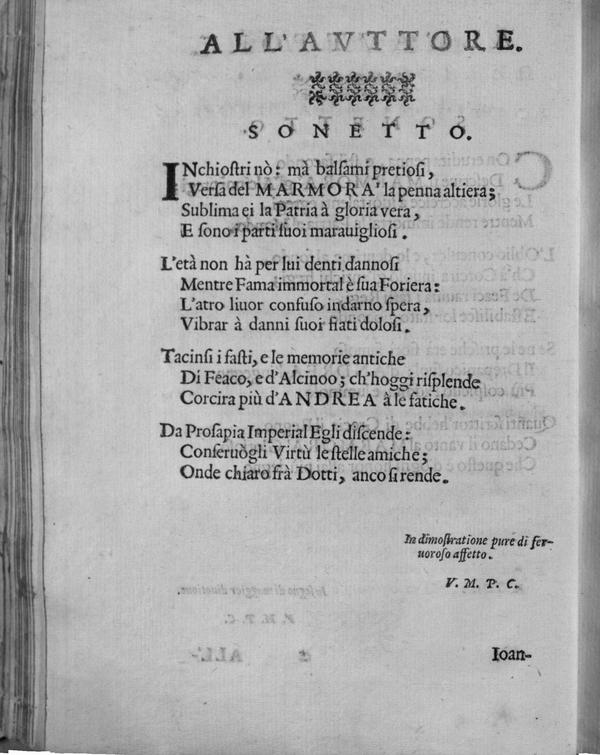 ALL'AVTTORE.
SONETTO.
INchioſtri nò: mà balſami pretioſi,
Verſa del MARMORA' la penna altiera;
Sublima ei la Patria à gloria vera,
E ſono i parti ſuoi marauiglioſi.
L'età non hà per lui denti dannoſi
Mentre Fama immortal è ſua Foriera:
L'atro liuor confuſo indarno ſpera,
Vibrar à danni ſuoi fiati doloſi.
Tacinſi i faſti, e le memorie antiche
Di Feaco, e d'Alcinoo; ch'hoggi riſplende
Corcira più d'ANDREA à le fatiche.
Da Proſapia Imperial Egli diſcende:
Conſeruògli Virtù le ſtelle amiche;
Onde chiaro frà Dotti, anco ſi rende.
In dimoſtratione pure di fer-
uoroſo affetto.
V. M. P. C.
Ioan-